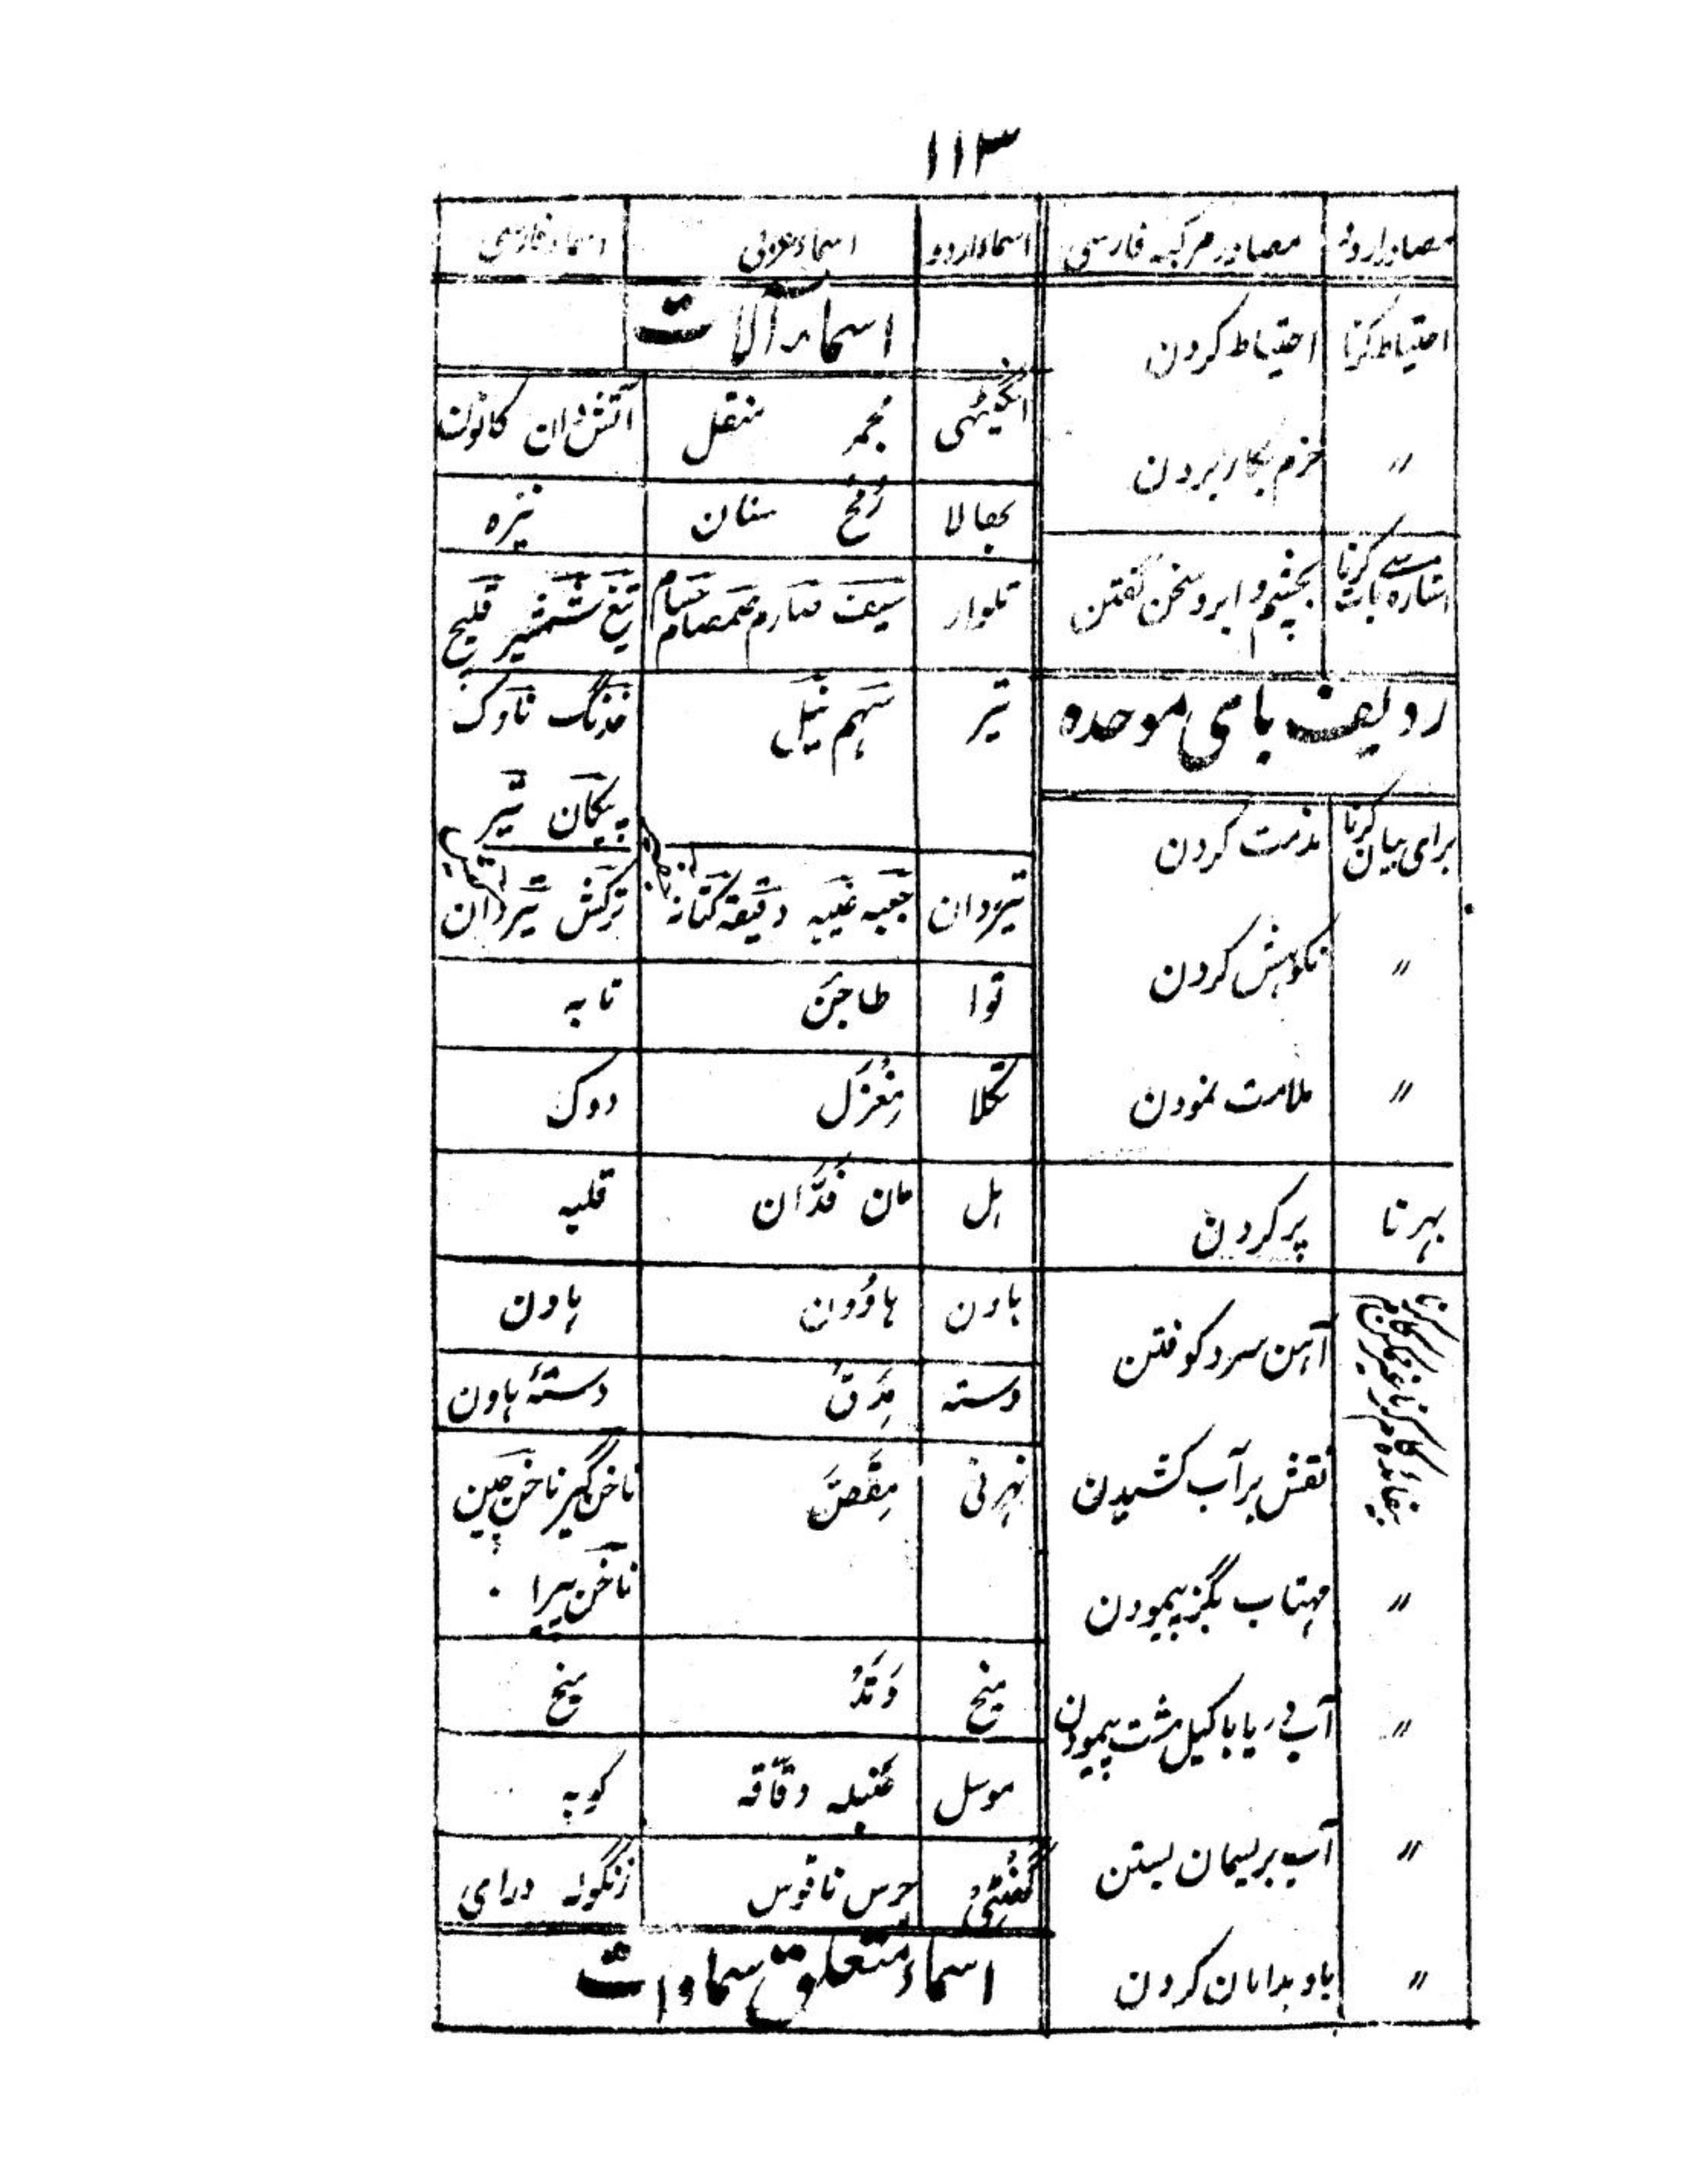 ۱۱۳
مصادر اردو | مصادر مرکبہ فارسی
احتیاط کرنا | احتیاط کردن
〃 | حزم بکار بردن
اشارہ سے بات کرنا | بچشم و ابرو سخن گفتن
ردیف بای موحدہ
برای بیان کرنا | مذمت کردن
〃 | نکوہش کردن
〃 | ملامت نمودن
بہرنا | پر کردن
بیفائدہ کام کرنا | آہن سرد کوفتن
نقش بر آب کشیدن
〃 | مہتاب بگز پیمودن
〃 | آب دریا با کیل مشت پیمودن
〃 | آب بریسمان بستن
〃 | باد بدامان کردن
اسماء اردو | اسماء عربی | اسماء فارسی
اسماء آلات
انگیٹہی | مجمر منقل | آتش دان کانون
بھالا | رُمح سنان | نیزہ
تلوار | سیف صارم صمصام حسام | تیغ شمشیر قلیچ
تیر | سَہم نَبل | خدنگ ناوک
پیکان تیر
تیردان | جعبہ غیبہ کنانہ | ترکش تیردان
توا | طاجن | تابہ
تکلا | مِغزَل | دوک
ہل | مان فَدَّان | قلبہ
ہاون | ہاوُون | ہاون
دستہ | مِدَقّ | دستۂ ہاون
نہرنی | مِقَصّ | ناخن گیر ناخن چین
ناخن پیرا
میخ | وَتَدُ | میخ
موسل | دقّاقہ | کوبہ
گھنٹی | جرس ناقوس | زنگولہ درای
اسماء متعلق سماوات